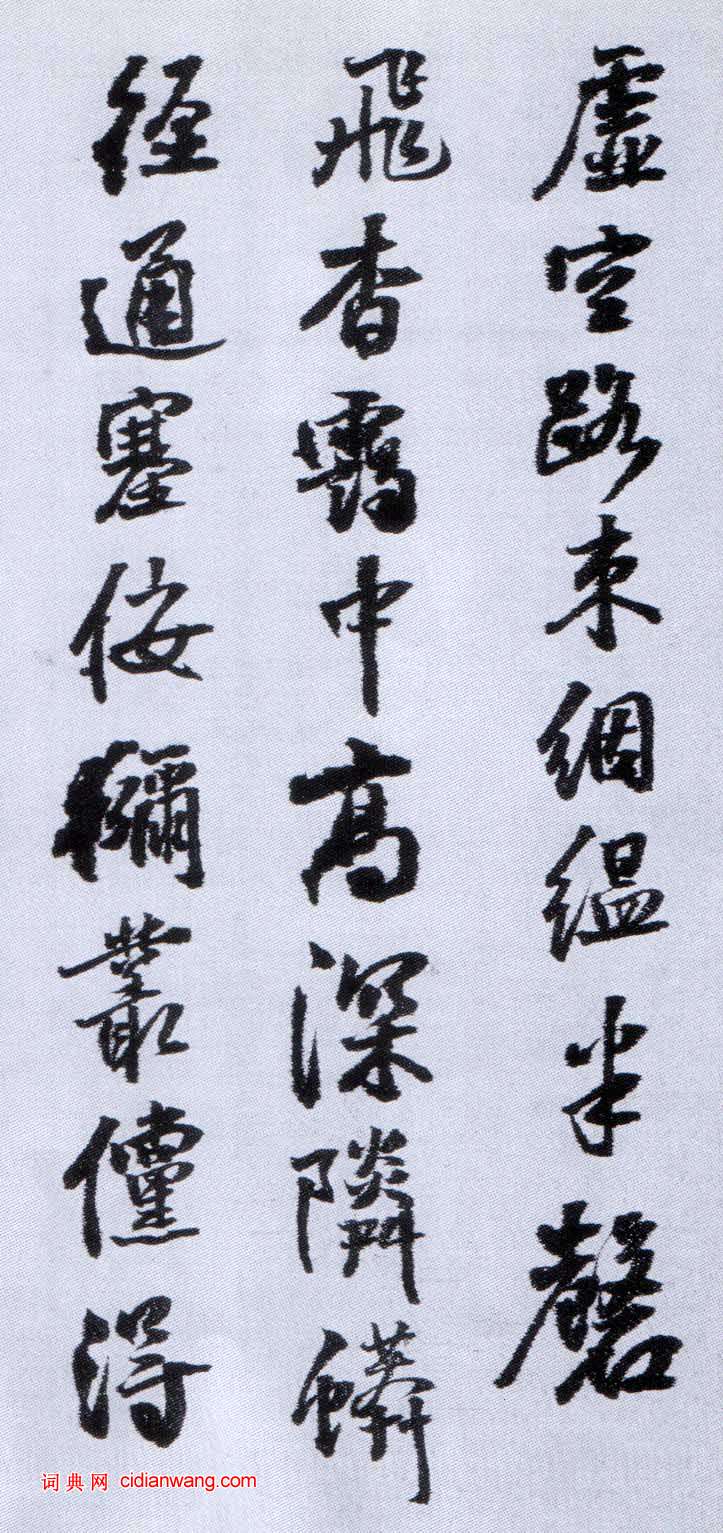 虛空路束絪縕半磬
飛杳靄中高深隣蟒
徑通塞佞獼叢儻得
词典网 cidianwang.com